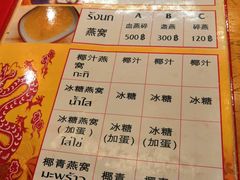 รังนก A B C
燕窝 血燕碎 盏燕 燕碎
500 ฿ 300 ฿ 120 ฿
椰汁燕窝 椰汁 椰汁 椰汁
กะทิ
冰糖燕窝 冰糖 冰糖 冰糖
น้ำใส
冰糖燕窝 冰糖 冰糖 冰糖
(加蛋) (加蛋) (加蛋) (加蛋)
ใส่ไข่
椰青燕窝 椰青 椰青
มะพร้าว